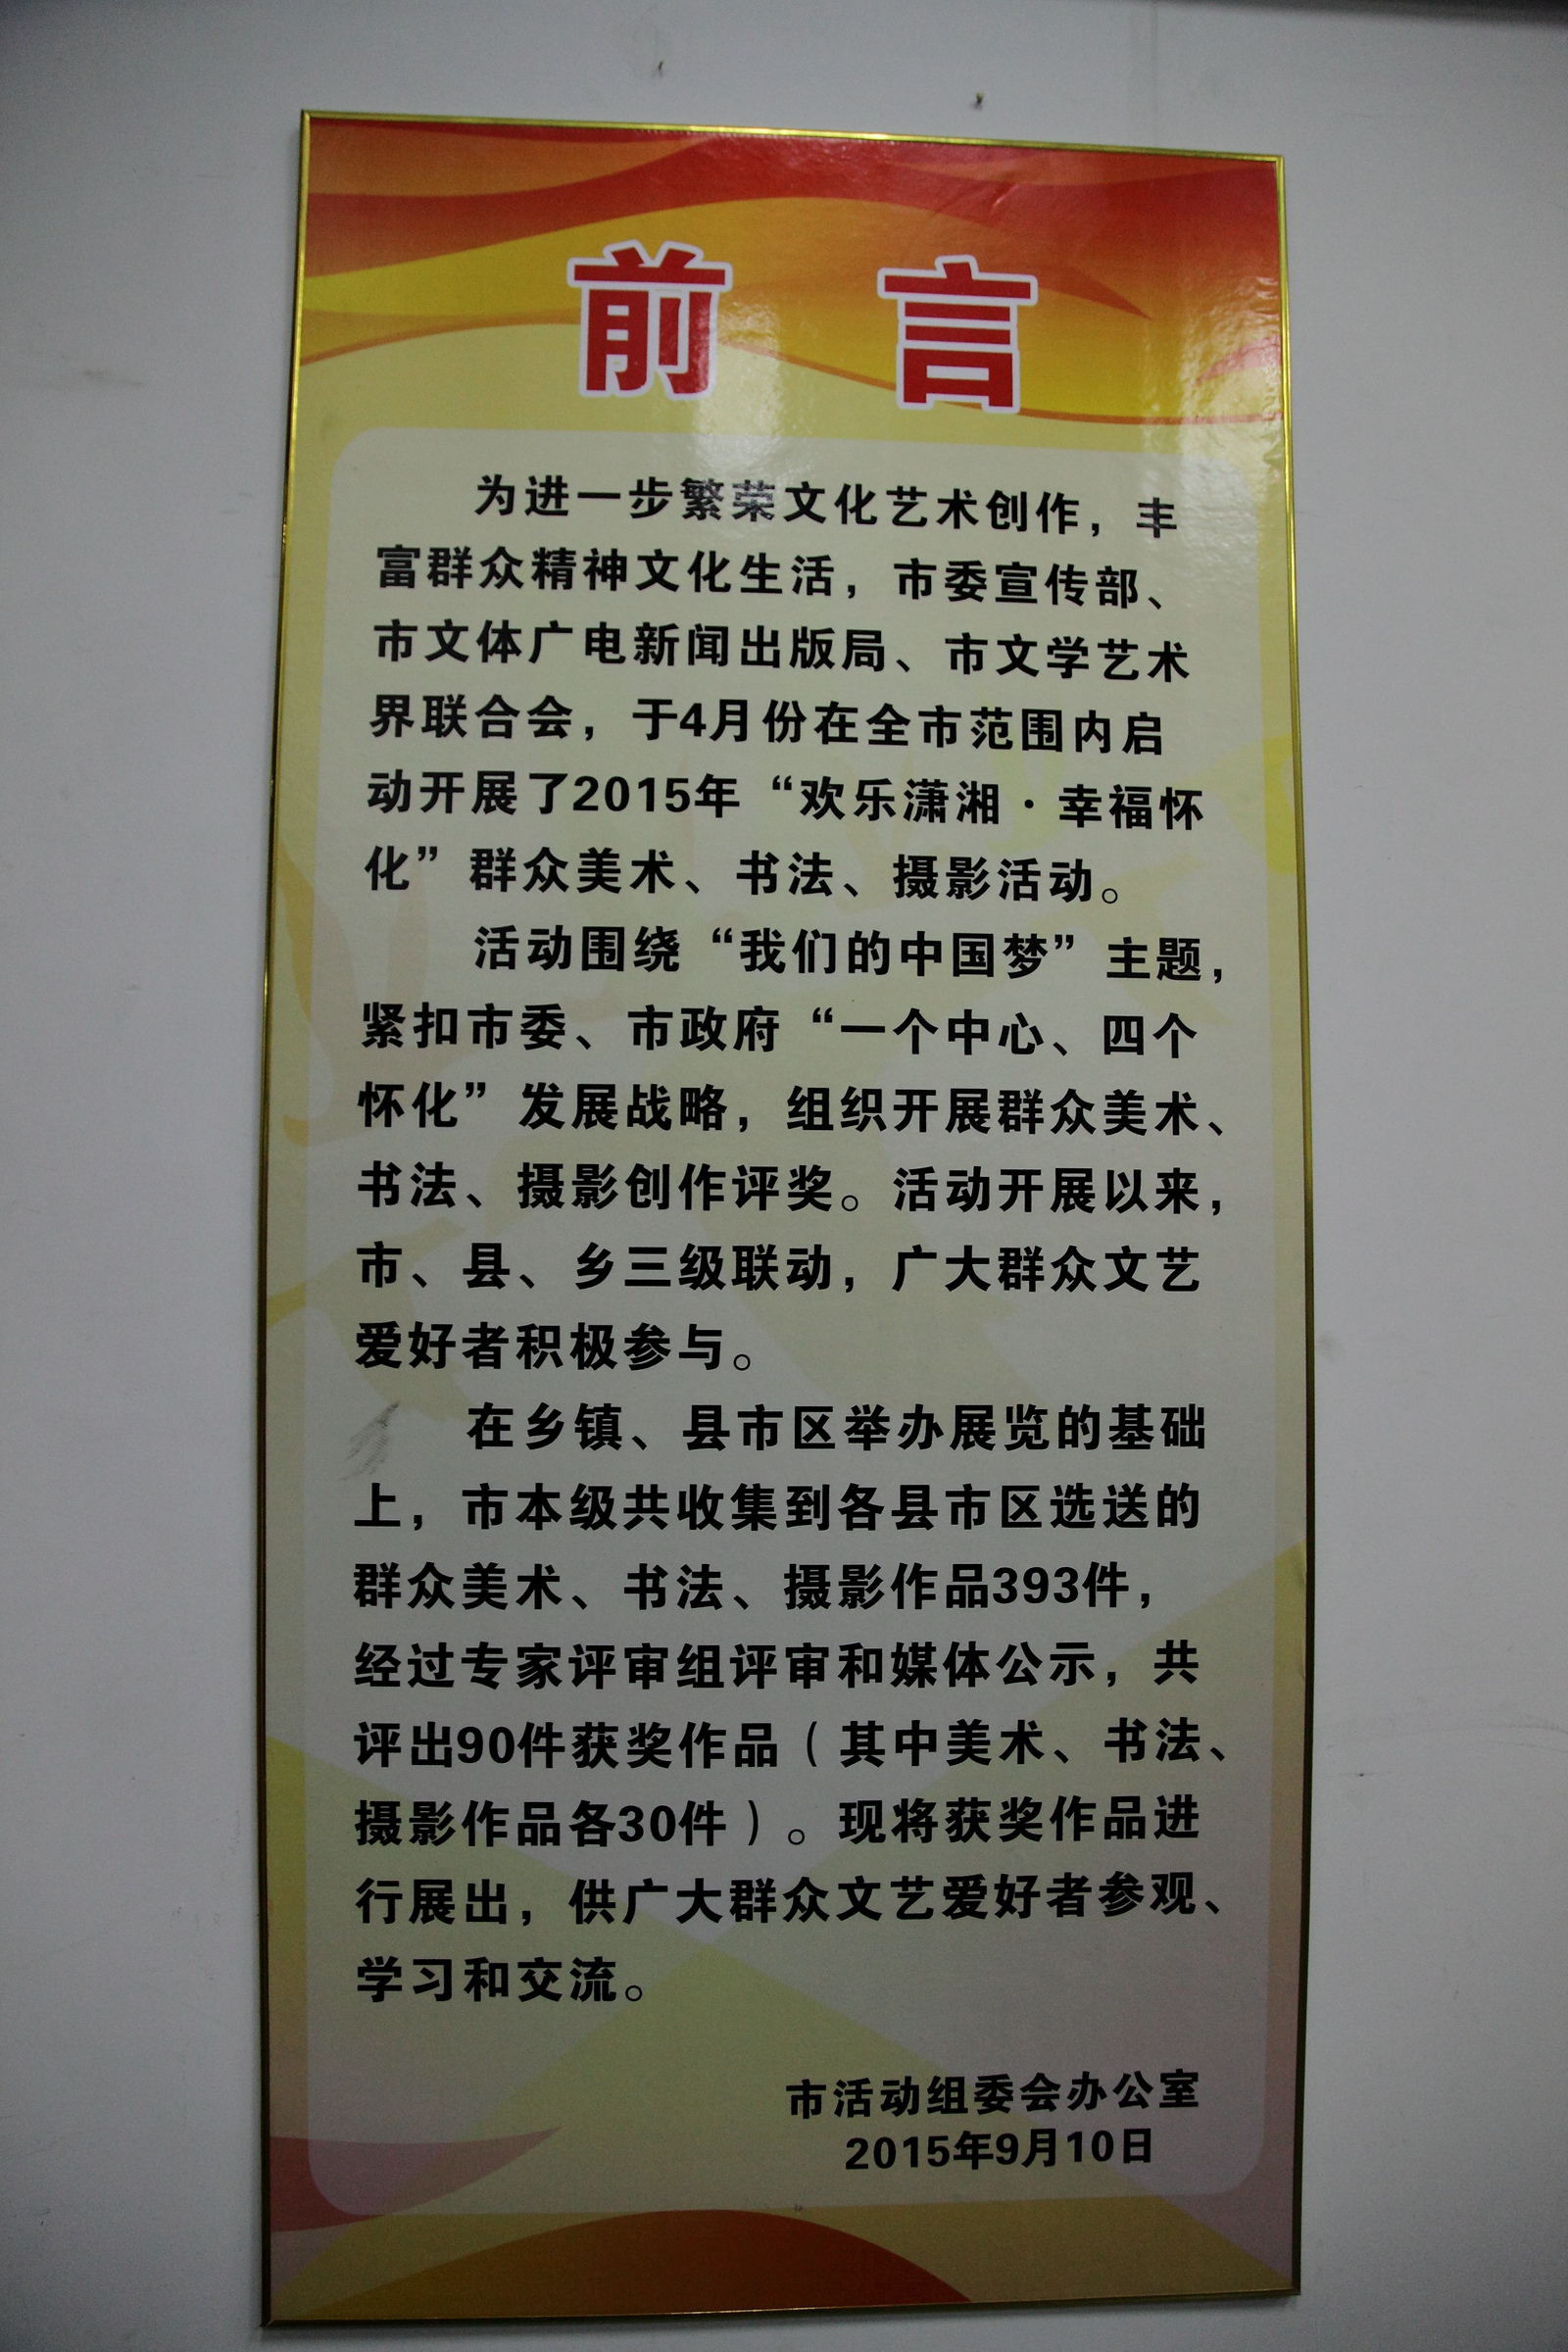 前言
为进一步繁荣文化艺术创作，丰
富群众精神文化生活，市委宣传部、
市文体广电新闻出版局、市文学艺术
界联合会，于4月份在全市范围内启
动开展了2015年“欢乐潇湘·幸福怀
化”群众美术、书法、摄影活动。
活动围绕“我们的中国梦”主题，
紧扣市委、市政府“一个中心、四个
怀化”发展战略，组织开展群众美术、
书法、摄影创作评奖。活动开展以来，
市、县、乡三级联动，广大群众文艺
爱好者积极参与。
在乡镇、县市区举办展览的基础
上，市本级共收集到各县市区选送的
群众美术、书法、摄影作品393件，
经过专家评审组评审和媒体公示，共
评出90件获奖作品（其中美术、书法、
摄影作品各30件）。现将获奖作品进
行展出，供广大群众文艺爱好者参观、
学习和交流。
市活动组委会办公室
2015年9月10日